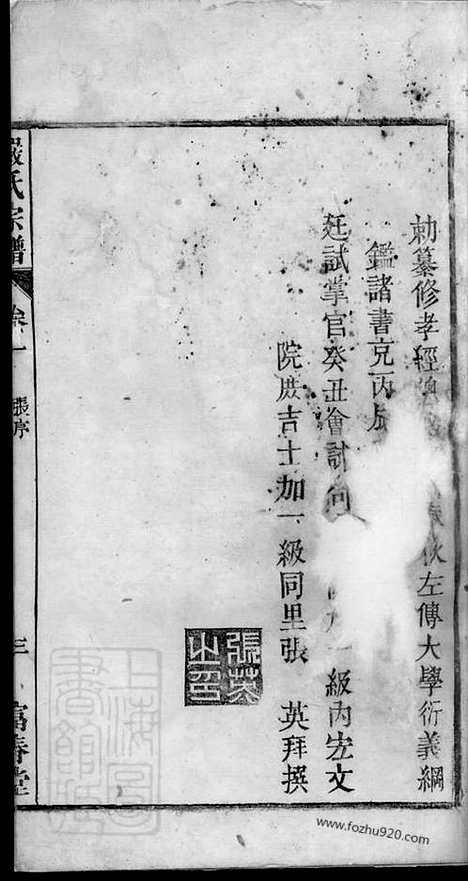 勅纂修孝經 左傳大學衍義綱
鑑諸書克丙
廷試掌官癸丑會試同 一級內宏文
院庶吉士加一級同里張 英拜撰
張英之印
嚴氏宗譜 卷一 張序 三 富春堂
上海圖書館藏
www.fozhu920.com